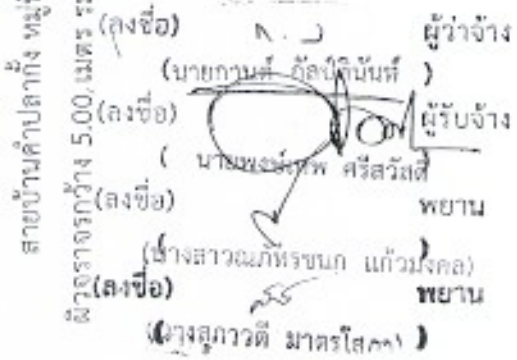 สายบ้านคำปลากั้ง หมู่
ผิวจราจรกว้าง 5.00 เมตร
(ลงชื่อ) ผู้ว่าจ้าง
(นายกานต์ กัลป์ตินันท์ )
(ลงชื่อ) ผู้รับจ้าง
( นายพงษ์เทพ ศรีสวัสดิ์
(ลงชื่อ) พยาน
(นางสาวณภัทรชนก แก้วมงคล)
(ลงชื่อ) พยาน
(นางสุภาวดี )